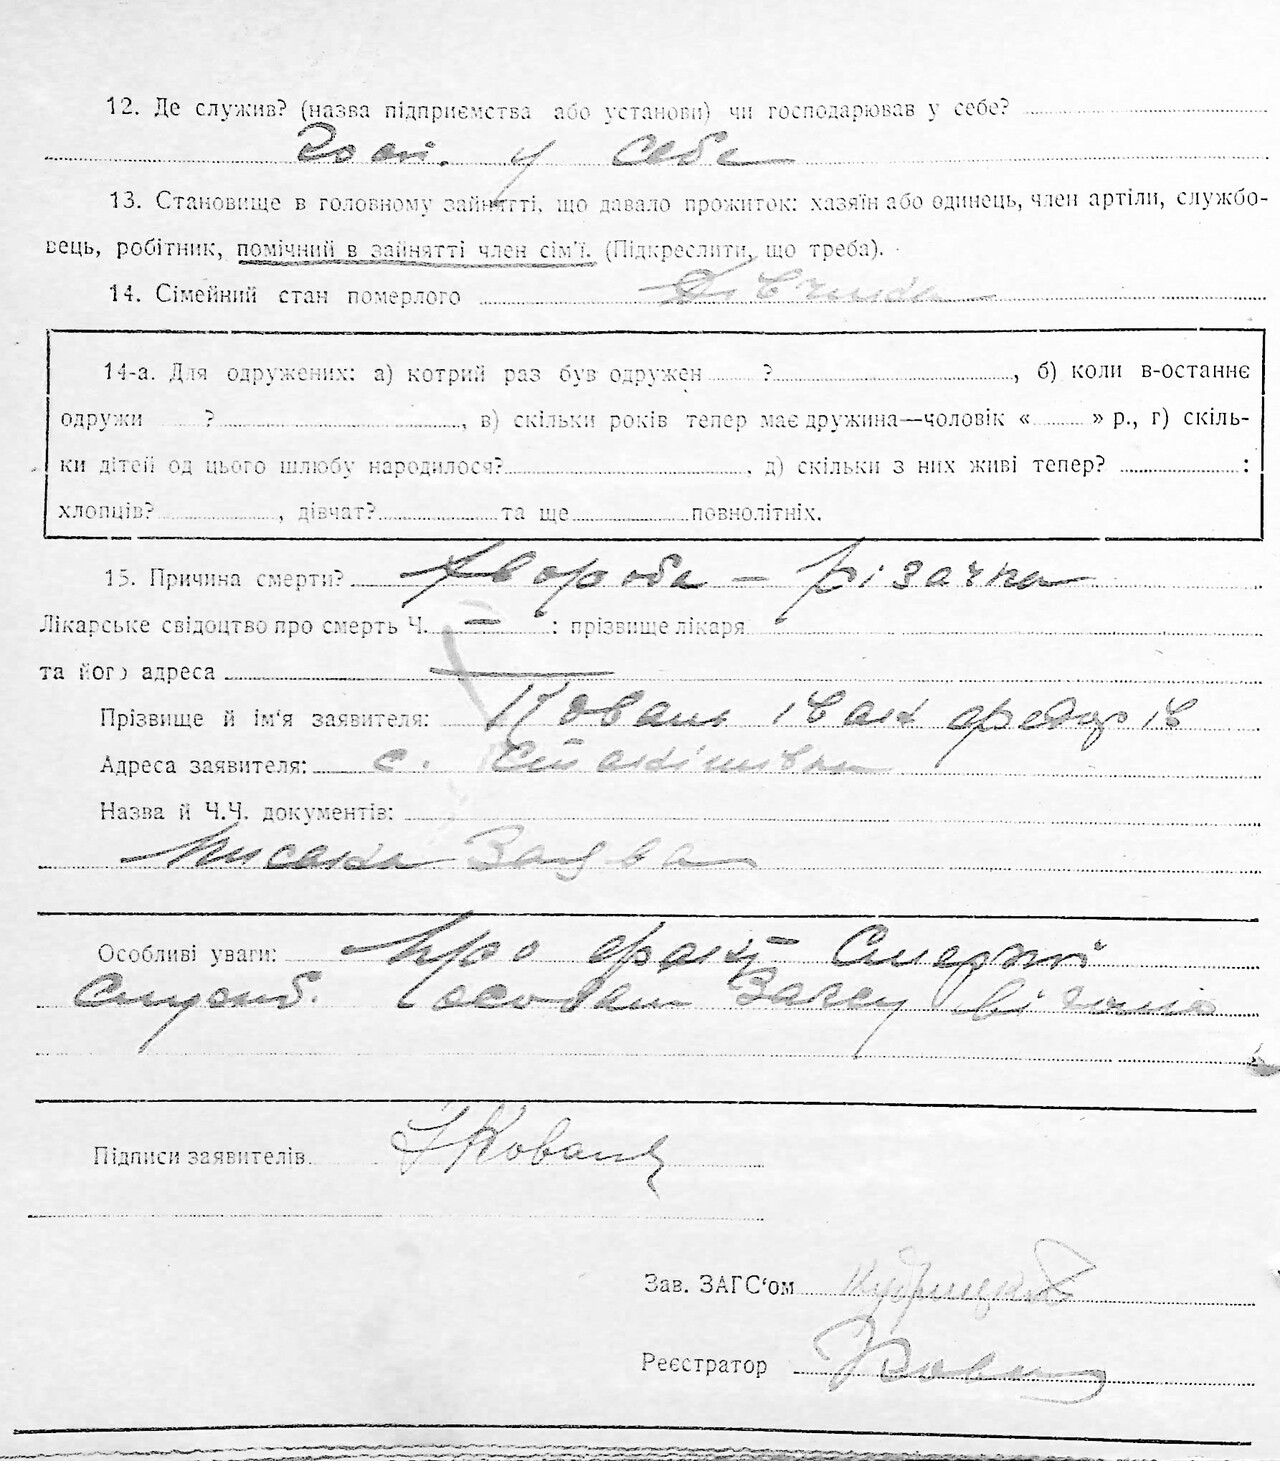 12. Де служив? (назва підприємства або установи) чи господарював у себе?
Госп. у себе
13. Становище в головному зайнятті, що давало прожиток: хазяїн або одинець, член артіли, службо-
вець, робітник, помічний в зайнятті член сім'ї. (Підкреслити, що треба).
14. Сімейний стан померлого Дівчинка
14-а. Для одружених: а) котрий раз був одружен ? , б) коли в-останнє
одружи ? , в) скільки років тепер має дружина—чоловік « » р., г) скіль-
ки дітей од цього шлюбу народилося? , д) скільки з них живі тепер? :
хлопців? , дівчат? та ще повнолітніх.
15. Причина смерти? Хвороба – різачка
Лікарське свідоцтво про смерть Ч. — : прізвище лікаря
та його адреса
Прізвище й ім'я заявителя: Коваль Іван Федорів
Адреса заявителя: с.
Назва й Ч.Ч. документів:
Особливі уваги: Про факт Смерти
Підписи заявителів. Коваль
Зав. ЗАГС'ом
Реєстратор